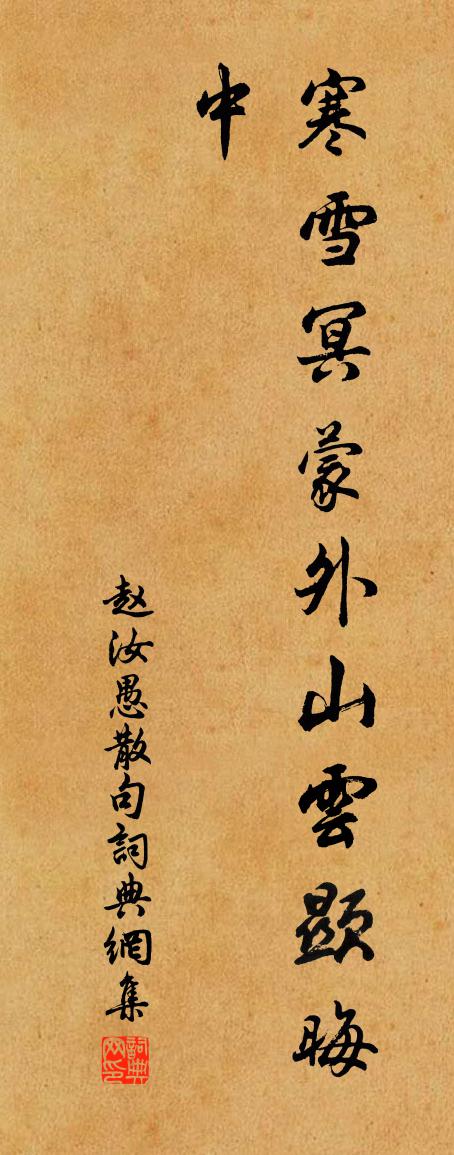 寒雪冥蒙外山雲顯晦
中
赵汝愚散句詞典網集
詞典網印